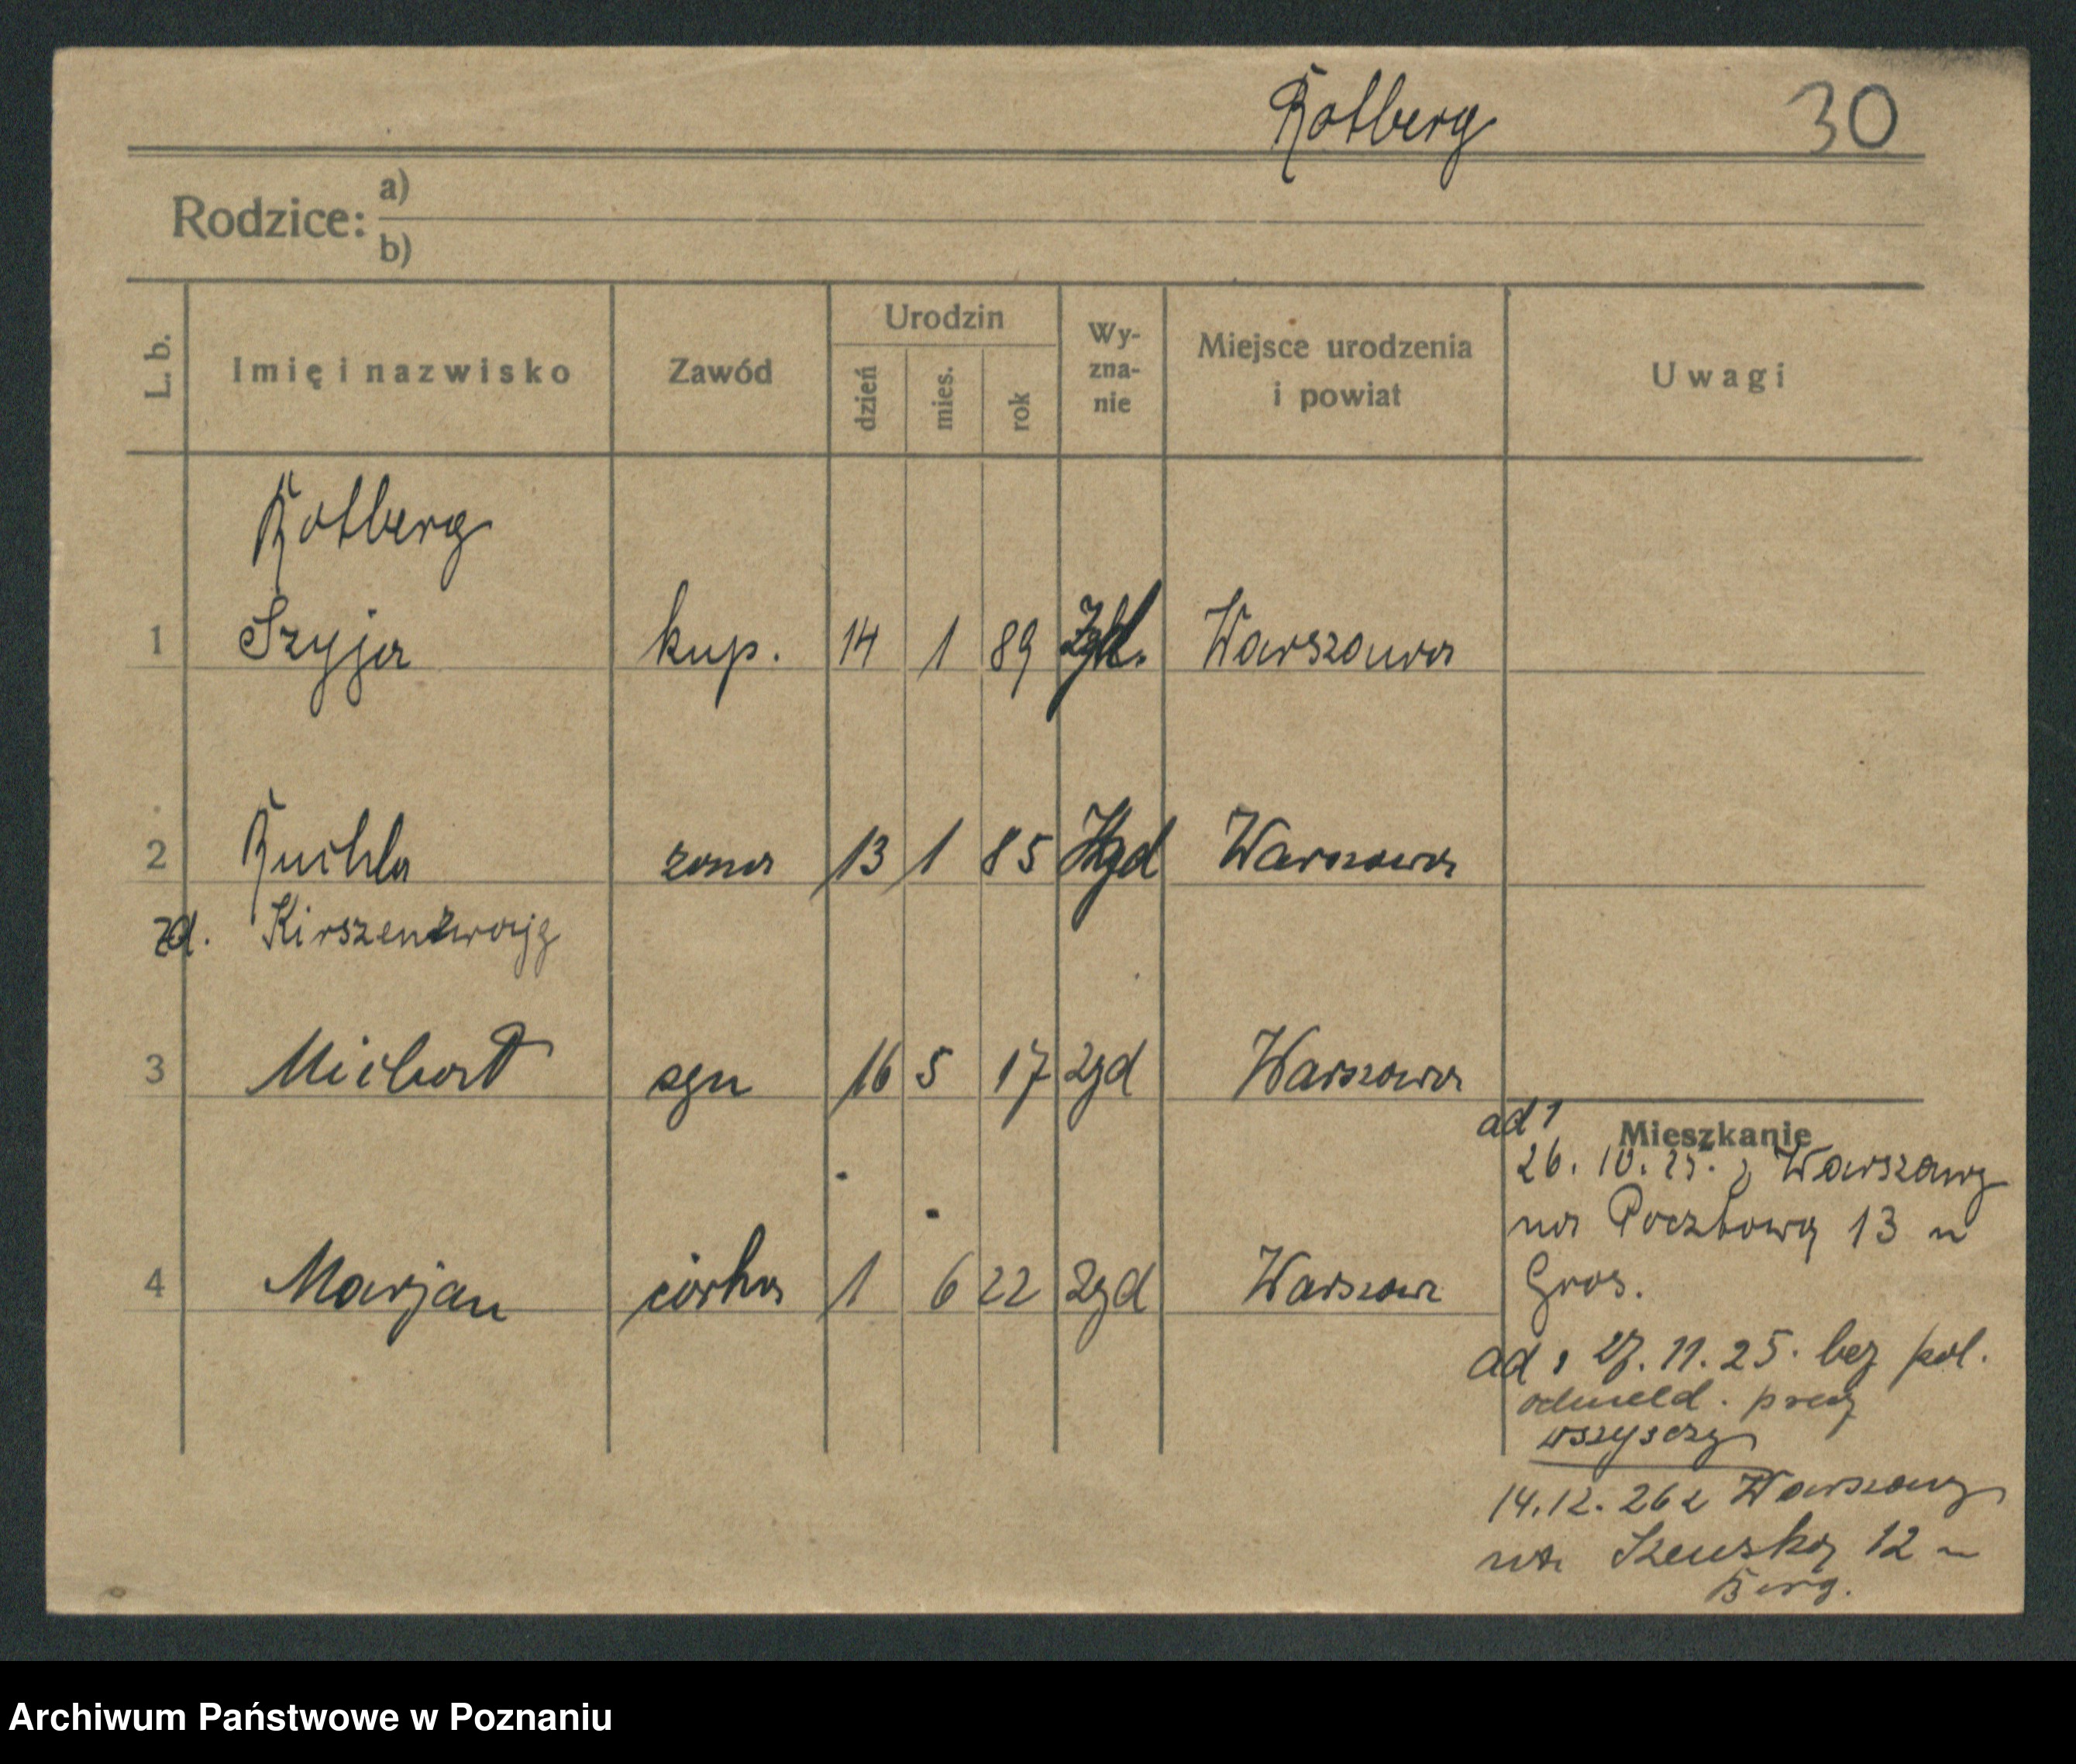 Rotberg 30
Rodzice: a)
b)
L. b. Imię i nazwisko Zawód Urodzin dzień mies. rok Wy-zna-nie Miejsce urodzenia i powiat Uwagi
Rotberg
1 Szyja kup. 14 1 89 Warszawa
2 Ruchla zona 13 1 85 Warszawa
zd. Kirszencwajg
3 syn 16 5 17 Warszawa
4 Marjan córka 1 6 22 Warszaw
ad 1
Mieszkanie
26. 10. 25. z Warszawy
na Pocztową 13 u
Gros.
ad 1 27. 11. 25. bez pol.
odmeld. precz
wszyscy
14. 12. 26 z Warszawy
na Szewską 12
Berg.
Archiwum Państwowe w Poznaniu